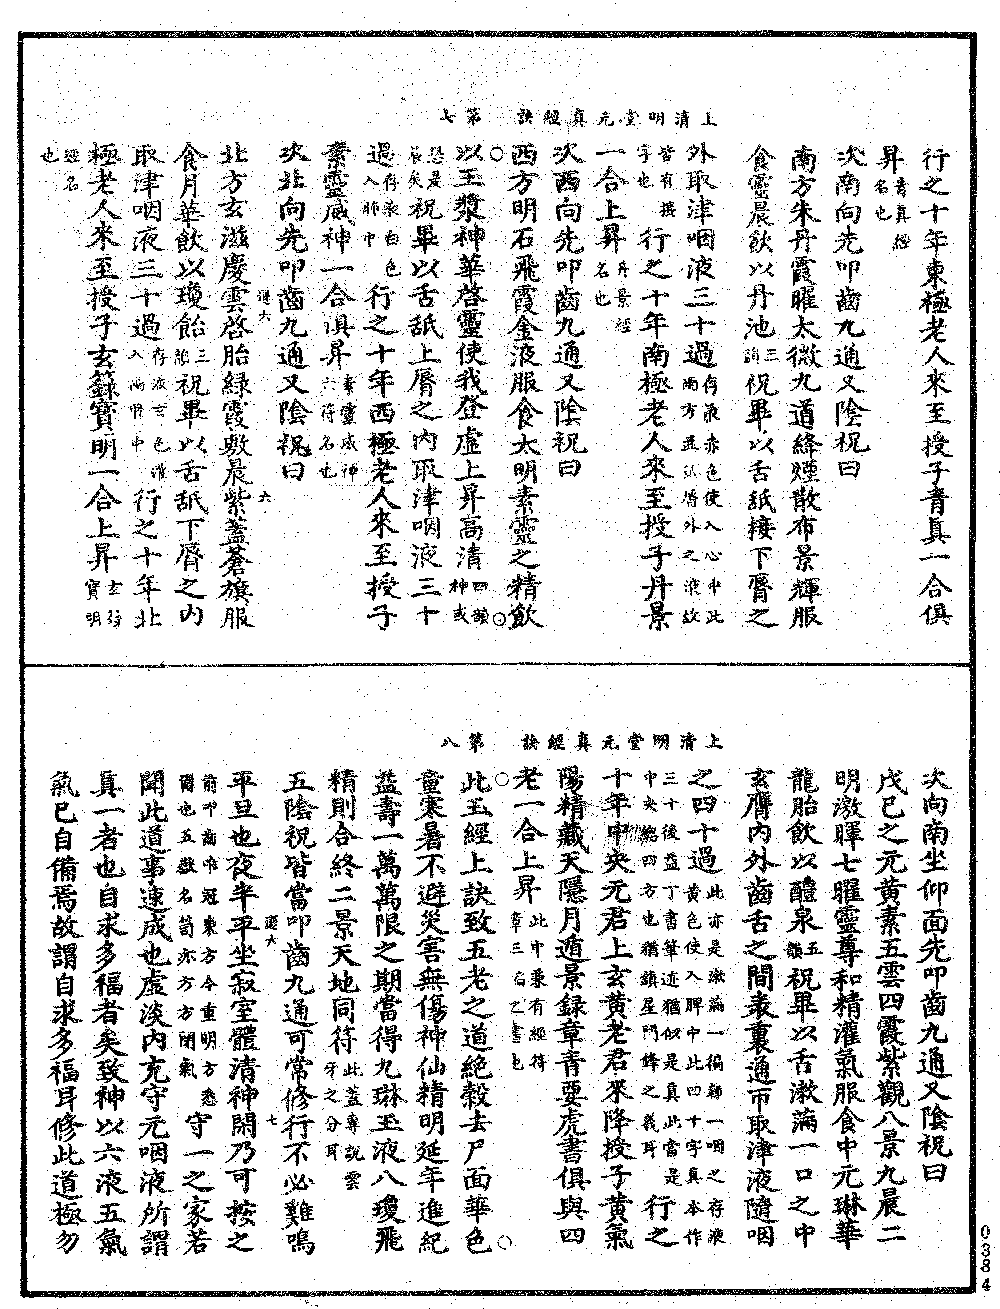 上清明堂元真經訣　第七
行之十年東極老人來至授子青真一合俱
昇青真經名也
次南向先叩齒九通又陰祝曰
南方朱丹霞曜太微九道絳煙散布景輝服
食靈晨飲以丹池三韻祝畢以舌舐接下脣之
外取津咽液三十過存液赤色使入心中此南方並以脣外之液故
皆有撰字也行之十年南極老人來至授子丹景
一合上昇丹景經名也
次西向先叩齒九通又陰祝曰
西方明石飛霞金液服食太明素靈之精飲
以玉漿神華啓靈使我登虛上昇高清四韻神或
是晨矣祝畢以舌舐上脣之內取津咽液三十
過存液白色入肺中行之十年西極老人來至授子
素靈威神一合俱昇素靈威神六符名也
次北向先叩齒九通又陰祝曰
謎六　六
北方玄滋慶雲啓胎綠霞敷晨紫蓋蒼旗服
食月華飲以瓊飴三韻祝畢以舌舐下脣之內
取津咽液三十過存液玄色灌入兩腎中行之十年北
極老人來至授子玄籙寶明一合上昇玄籙寶明
經名也
上清明堂元真經訣　第八
次向南坐仰面先叩齒九通又陰祝曰
戊巳之元黃素五雲四霞紫觀八景九晨二
明激暉七曜靈尊和精灌氣服食中元琳華
龍胎飲以醴泉五韻祝畢以舌漱滿一口之中
玄膺內外齒舌之間表裏通帀取津液隨咽
之四十過此亦是漱滿一徧輒一咽之存液黃色使入脾中此四十字真本作
三十後益丁書筆迹猶似是真此當是中央總四方也猶鎮星鬥鋒之義耳行之
十年中央元君上玄黃老君來降授子黃氣
陽精藏天隱月遁景錄章青要虎書俱與四
老一合上昇此中兼有經符章三名之書也
此玉經上訣致五老之道絕穀去尸面華色
童寒暑不避災害無傷神仙精明延年進紀
益壽一萬萬限之期當得九琳玉液八瓊飛
精則合終二景天地同符此蓋專說雲牙之分耳
五陰祝皆當叩齒九通可常修行不必雞鳴
謎六　七
平旦也夜半平坐寂室體清神閑乃可按之
前叩齒唯冠東方今重明方悉爾也五數名苟亦方方閉氣守一之家若
聞此道事速成也虛淡內充守元咽液所謂
真一者也自求多福者矣致神以六液五氣
氣已自備焉故謂自求多福耳修此道極勿
0384